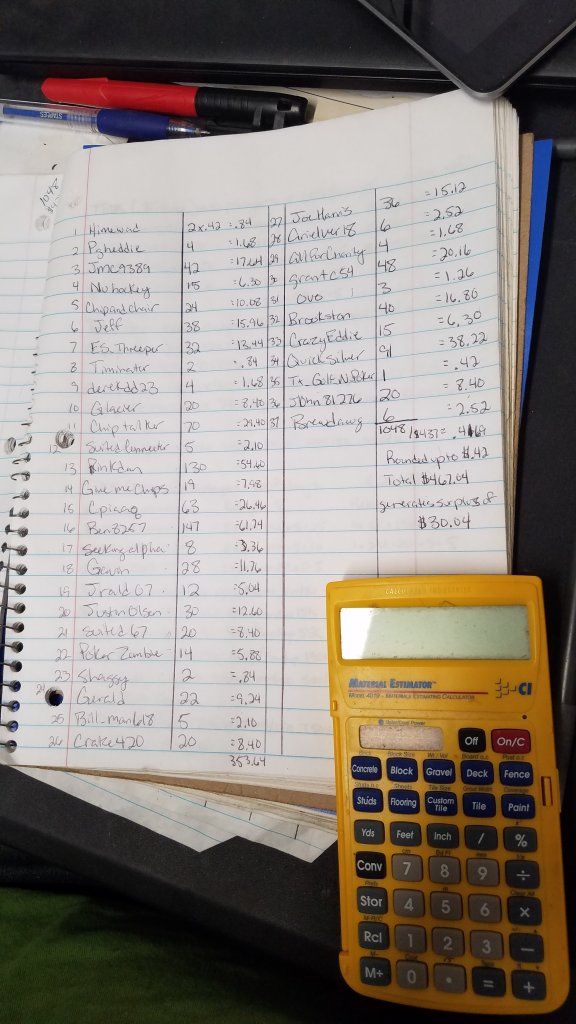 STAPLES
1048
1 Himewad 2x.42 = .84
2 Pgheddie 4 =1.68
3 JMC9389 42 =17.64
4 Nuhockey 15 =6.30
5 Chipandchair 24 =10.08
6 Jeff 38 =15.96
7 ES. Threeper 32 =13.44
8 Timinater 2 = .84
9 derekdd23 4 =1.68
10 Glacier 20 =8.40
11 Chip talker 70 =29.40
12 Suited Connector 5 =2.10
13 Rinkdan 130 =54.60
14 Give me Chips 19 =7.98
15 Cpiaaq 63 =26.46
16 Ben8257 147 =61.74
17 Seeking alpha 8 =3.36
18 28 =11.76
19 Jrald07 12 =5.04
20 Justin Olsen 30 =12.60
21 Suited 67 20 =8.40
22 Poker Zombie 14 =5.88
23 Shaggy 2 =.84
24 Gerald 22 =9.24
25 Bill-man618 5 =2.10
26 Crake420 20 =8.40
353.64
27 JoeHarris 36 =15.12
28 6 =2.52
29 AllForCharity 4 =1.68
30 grantc54 48 =20.16
31 ovo 3 =1.26
32 Brookston 40 =16.80
33 CrazyEddie 15 =6.30
34 Quicksilver 91 =38.22
35 Tx. Golf.N.Poker 1 =.42
36 John81276 20 =8.40
37 6 =2.52
1048 / $437 = .4169
Rounded up to $.42
Total $467.04
generates surplus of
$30.04
CALCULATED INDUSTRIES
MATERIAL ESTIMATOR™
MODEL 4019 - MATERIALS ESTIMATING CALCULATOR
CI
Off On/C
Brick Block Size Wt/Vol Board o.c. Post o.c.
Concrete Block Gravel Deck Fence
Studs o.c. Sheets Tile Size Grout Width Coverage
Studs Flooring Custom Tile Tile Paint
Yds Feet Inch / %
Conv 7 8 9 ÷
Stor 4 5 6 ×
Rcl 1 2 3 −
M+ 0 • = +